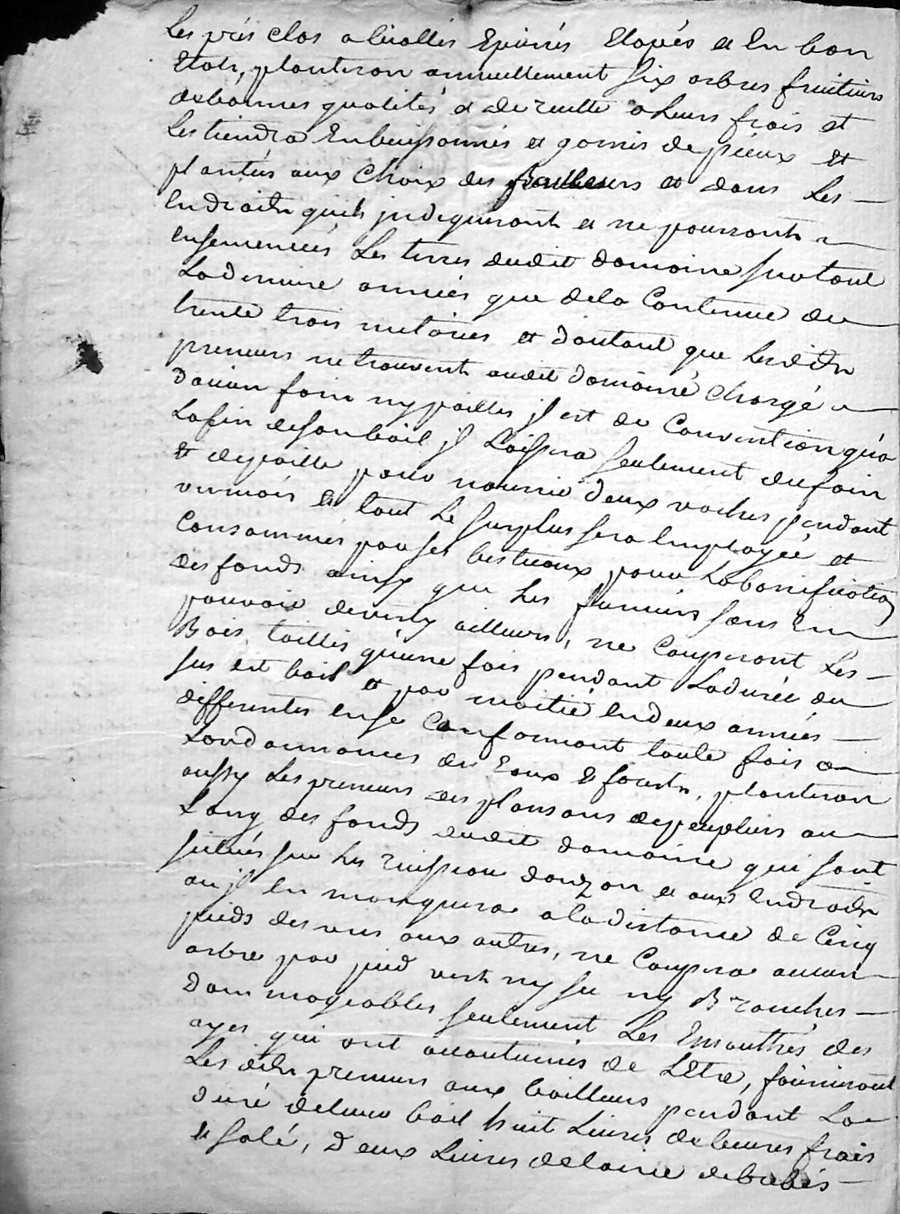 Les prés clos abialliés Epinés Etapés et En bon
Etats, planteron annuellement six arbres fruitiers
de bonnes qualités et de reuitte a leurs frais et
Les tiendra Enbuissonnés et garnis de pieux et
plantés aux Choix des Bailleurs et dans Les
Endroitn quils jndiqueront et ne pourront
ensemencés Les terres dudit domaine surtout
La derniere années que dela Contenue de
trente trois meterées et dautant que Lesditn
preneurs ne trouvent audit domaine Chargé
daucun foin ny pailles jl est de Convention qu'a
La fin deson bail jl Laissera seulement du foin
et depaille pour nourrir deux vaches pendant
un mois et tout Le surplus sera Employée et
Consommés par ses bestiaux pour La bonification
des fonds ainsy que Les fumiers sans En
pouvoir divertir ailleurs, ne Couperont Les
Bois taillis qu'une fois pendant La durée du
sus dit bail et par moitié En deux années
differentes en se Conformant toute fois a
Lordonnances des Eaux et forestn, planteron
aussy Les preneurs des plansons depeupliers au
Long des fonds dudit domaine qui sont
situés sur Les ruisseau douzon et aux Endroitn
ou jl En manquera a la distance de Cinq
pieds des uns aux autres, ne Coupera aucun
arbre par pied vert ny sec ny Branches
dommageables seulement Les Emouttrés des
ayes qui ont accoutumés de L'Etre, fourniront
Les ditn preneurs aux bailleurs pendant La
duré deleur bail huit Livres de beurre frais
et salé, Deux Livres delaine debrebis